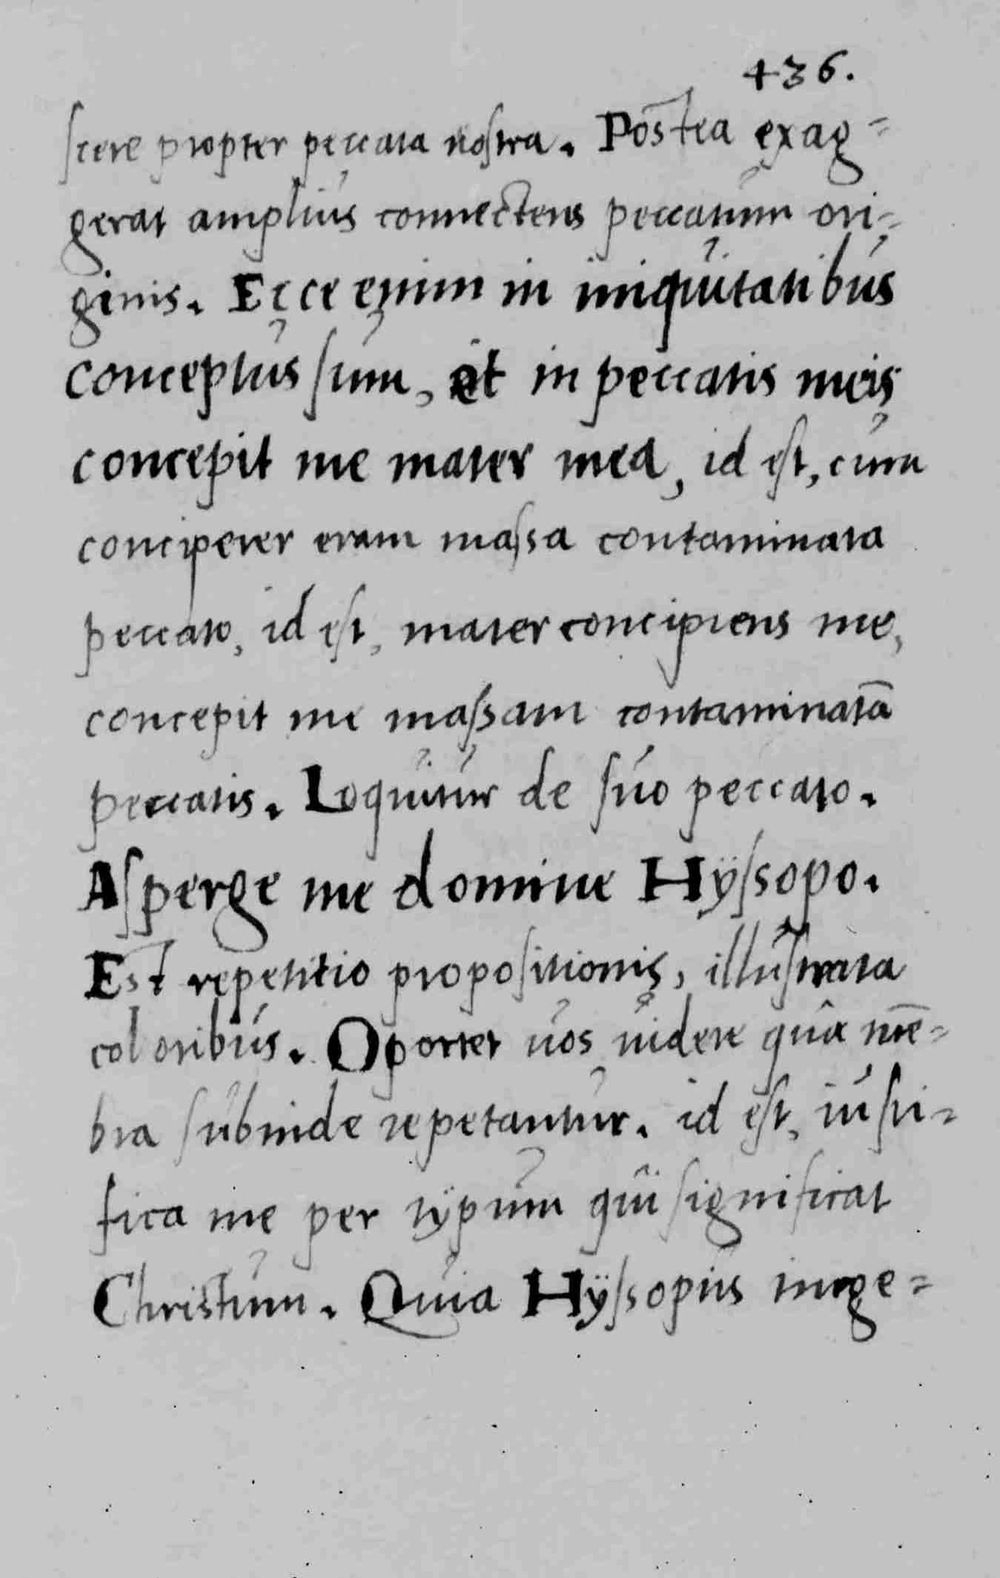 436.
scere propter peccata nostra. Postea exag=
gerat amplius connectens peccatum ori=
ginis. Ecce enim in iniquitatibus
conceptus sum, et in peccatis meis
concepit me mater mea, id est, cum
conciperer eram massa contaminata
peccato, id est, mater concipiens me,
concepit me massam contaminatã
peccatis. Loquitur de suo peccato.
Asperge me domine Hÿssopo.
Est repetitio propositionis, illustrata
coloribus. Oportet uos uidere quæ mẽ=
bra subinde repetantur. id est, iusti=
fica me per tÿpum qui significat
Christum. Quia Hÿssopus inge=